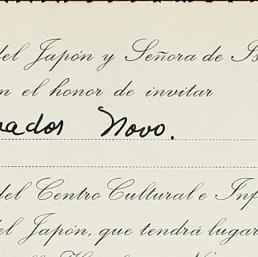 del Japón y Señora de Is
n el honor de invitar
vador Novo.
del Centro Cultural e Inf
del Japón, que tendrá lugar